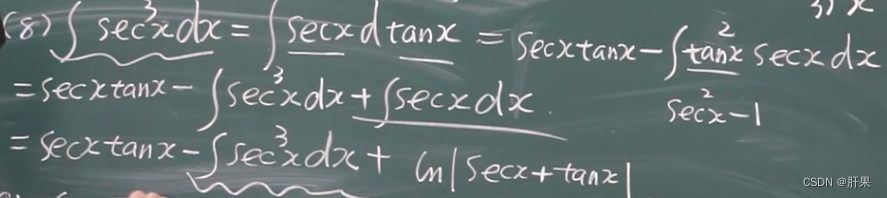 (8) ∫ sec³x dx = ∫ secx d tanx = secx tanx − ∫ tan²x secx dx
sec²x−1
= secx tanx − ∫ sec³x dx + ∫ secx dx
= secx tanx − ∫ sec³x dx + ln|secx + tanx|
CSDN @肝果